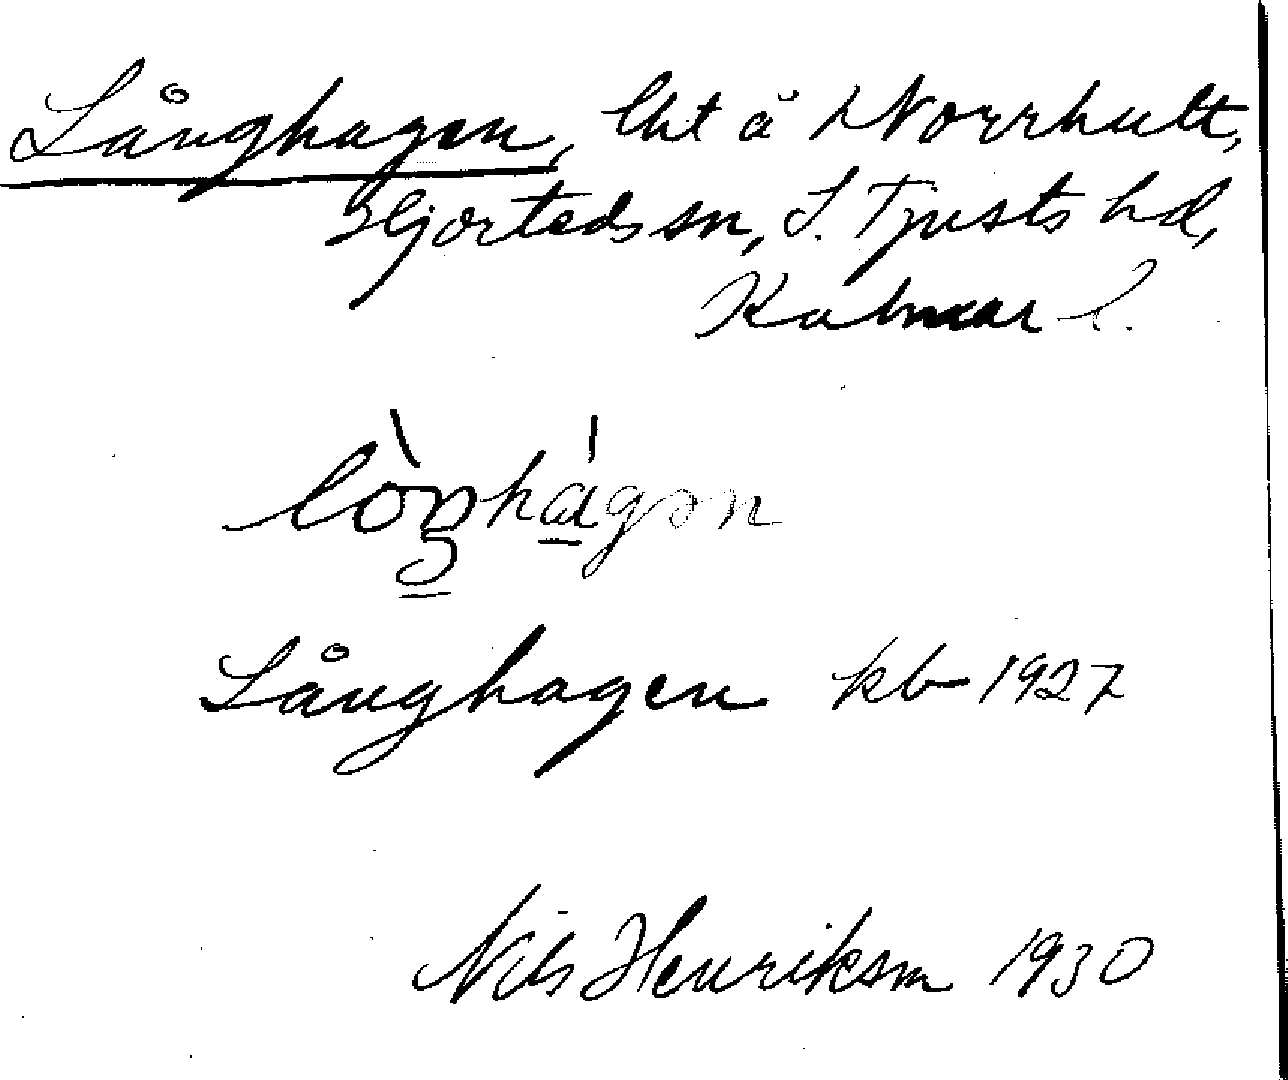 Långhagen, lht å Norrhult,
Hjorteds sn, S. Tjusts hd,
Kalmar l.
lòŋhágən
Långhagen kb 1927
Nils Henriksson 1930